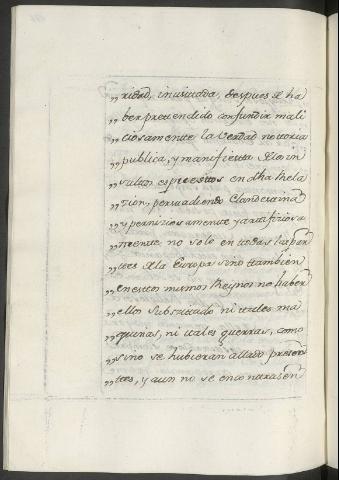 „ ridad, inusitada, despues de ha
„ ber pretendido confundir mali
„ ciosamente la Verdad notoria
„ publica, y manifiesta
„ sultos expresitos en dha Rela
„ cion, persuadiendo Clandestina
„ y perniziosamente y artifiziosa
„ mente no solo en todas las par
„ tes de la Europa sino ttambien
„ en estos mismos Reynos no haber
„ ellos substituido ni tales ma
„ quinas, ni tales guerras, como
„ si no se hubieran allado presen
„ tes, y aun no se encontrasen